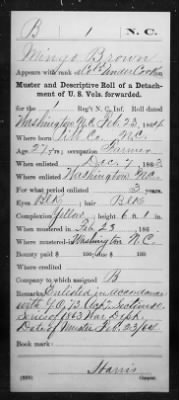 B 1 N. C.
Mingo Brown
Appears with rank of Col'd Under Cook on
Muster and Descriptive Roll of a Detach-
ment of U. S. Vols. forwarded.
for the 1 Reg't N. C. Inf. Roll dated
Washington N.C. Feb. 23, 1864
Where born Co., N.C.
Age 27 y'rs; occupation Farmer
When enlisted Dec. 7, 1863
Where enlisted Washington N.C.
For what period enlisted 3 years.
Eyes Blk; hair Blk
Complexion Yellow; height 6 ft. 1 in.
When mustered in Feb 23, 186
Where mustered in Washington N.C.
Bounty paid $ 100; due $ 100
Where credited
Company to which assigned B
Remarks: Enlisted in accordance
with G.O. 73, Section
Series of 1863 War Dept.
Date of Muster Feb. 23/64
Book mark:
Harris
(339) Copyist.